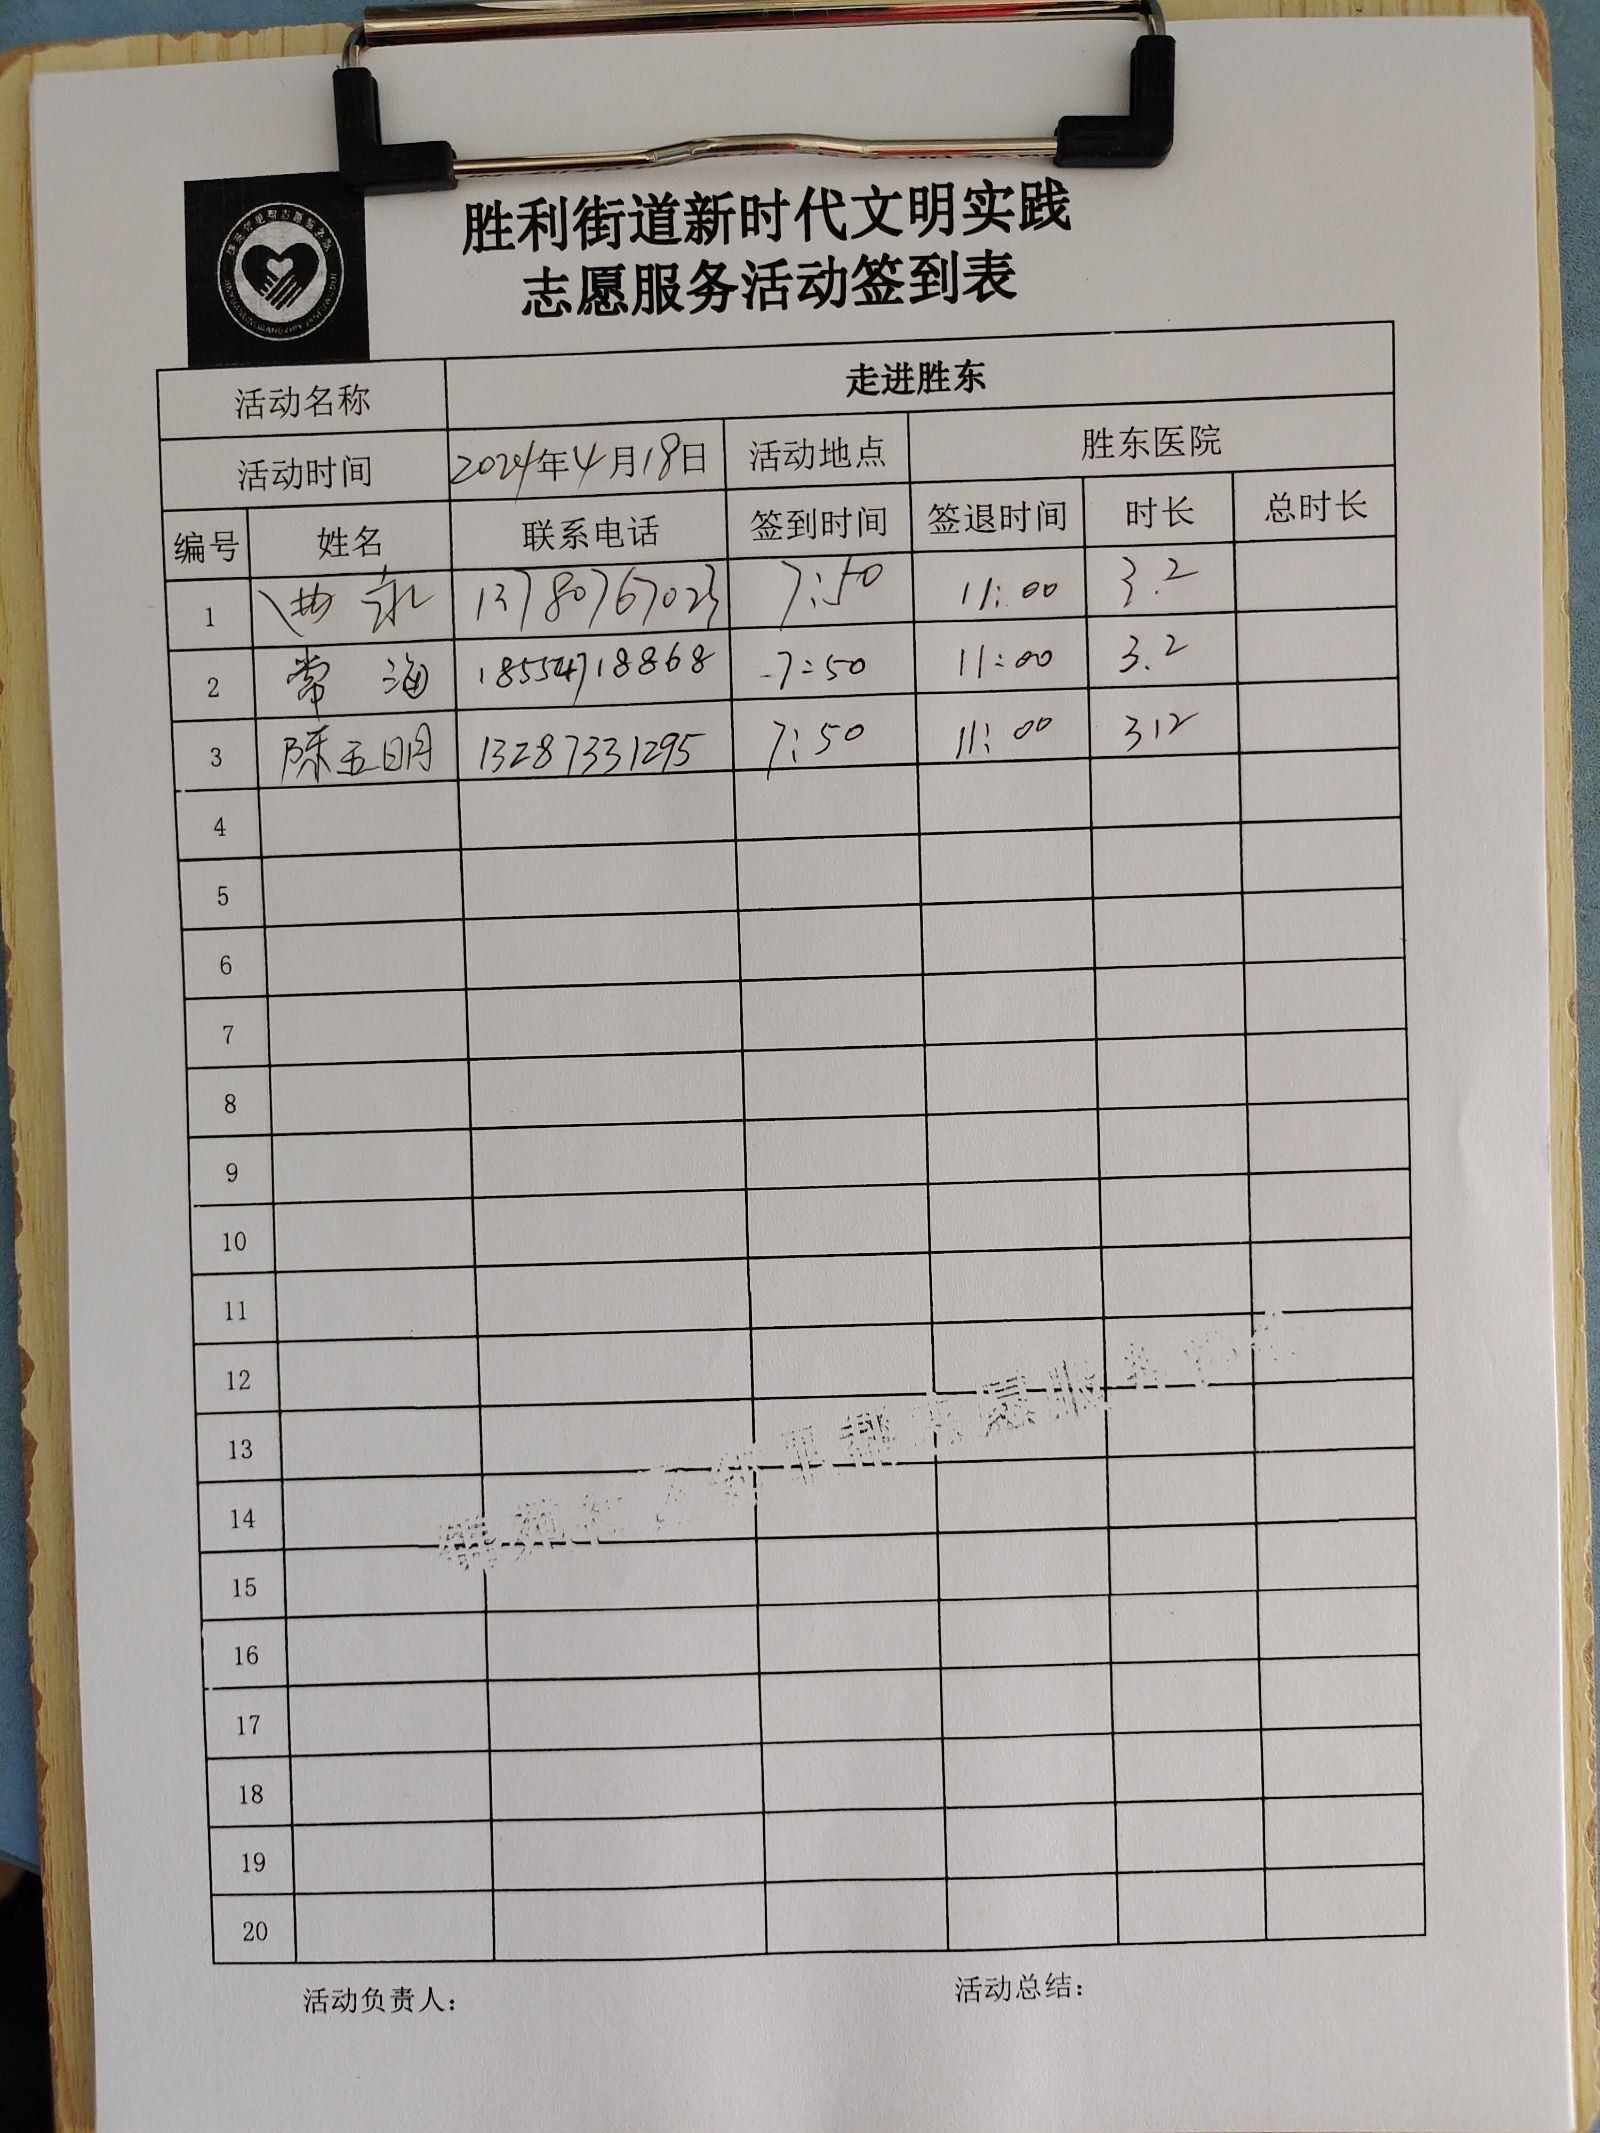 胜利街道新时代文明实践
志愿服务活动签到表
活动名称 走进胜东
活动时间 2024年4月18日 活动地点 胜东医院
编号 姓名 联系电话 签到时间 签退时间 时长 总时长
1 永 13780767023 7:50 11:00 3.2
2 常海 18554718868 7:50 11:00 3.2
3 陈玉明 13287331295 7:50 11:00 3.2
4
5
6
7
8
9
10
11
12
13
14
15
16
17
18
19
20
活动负责人： 活动总结：